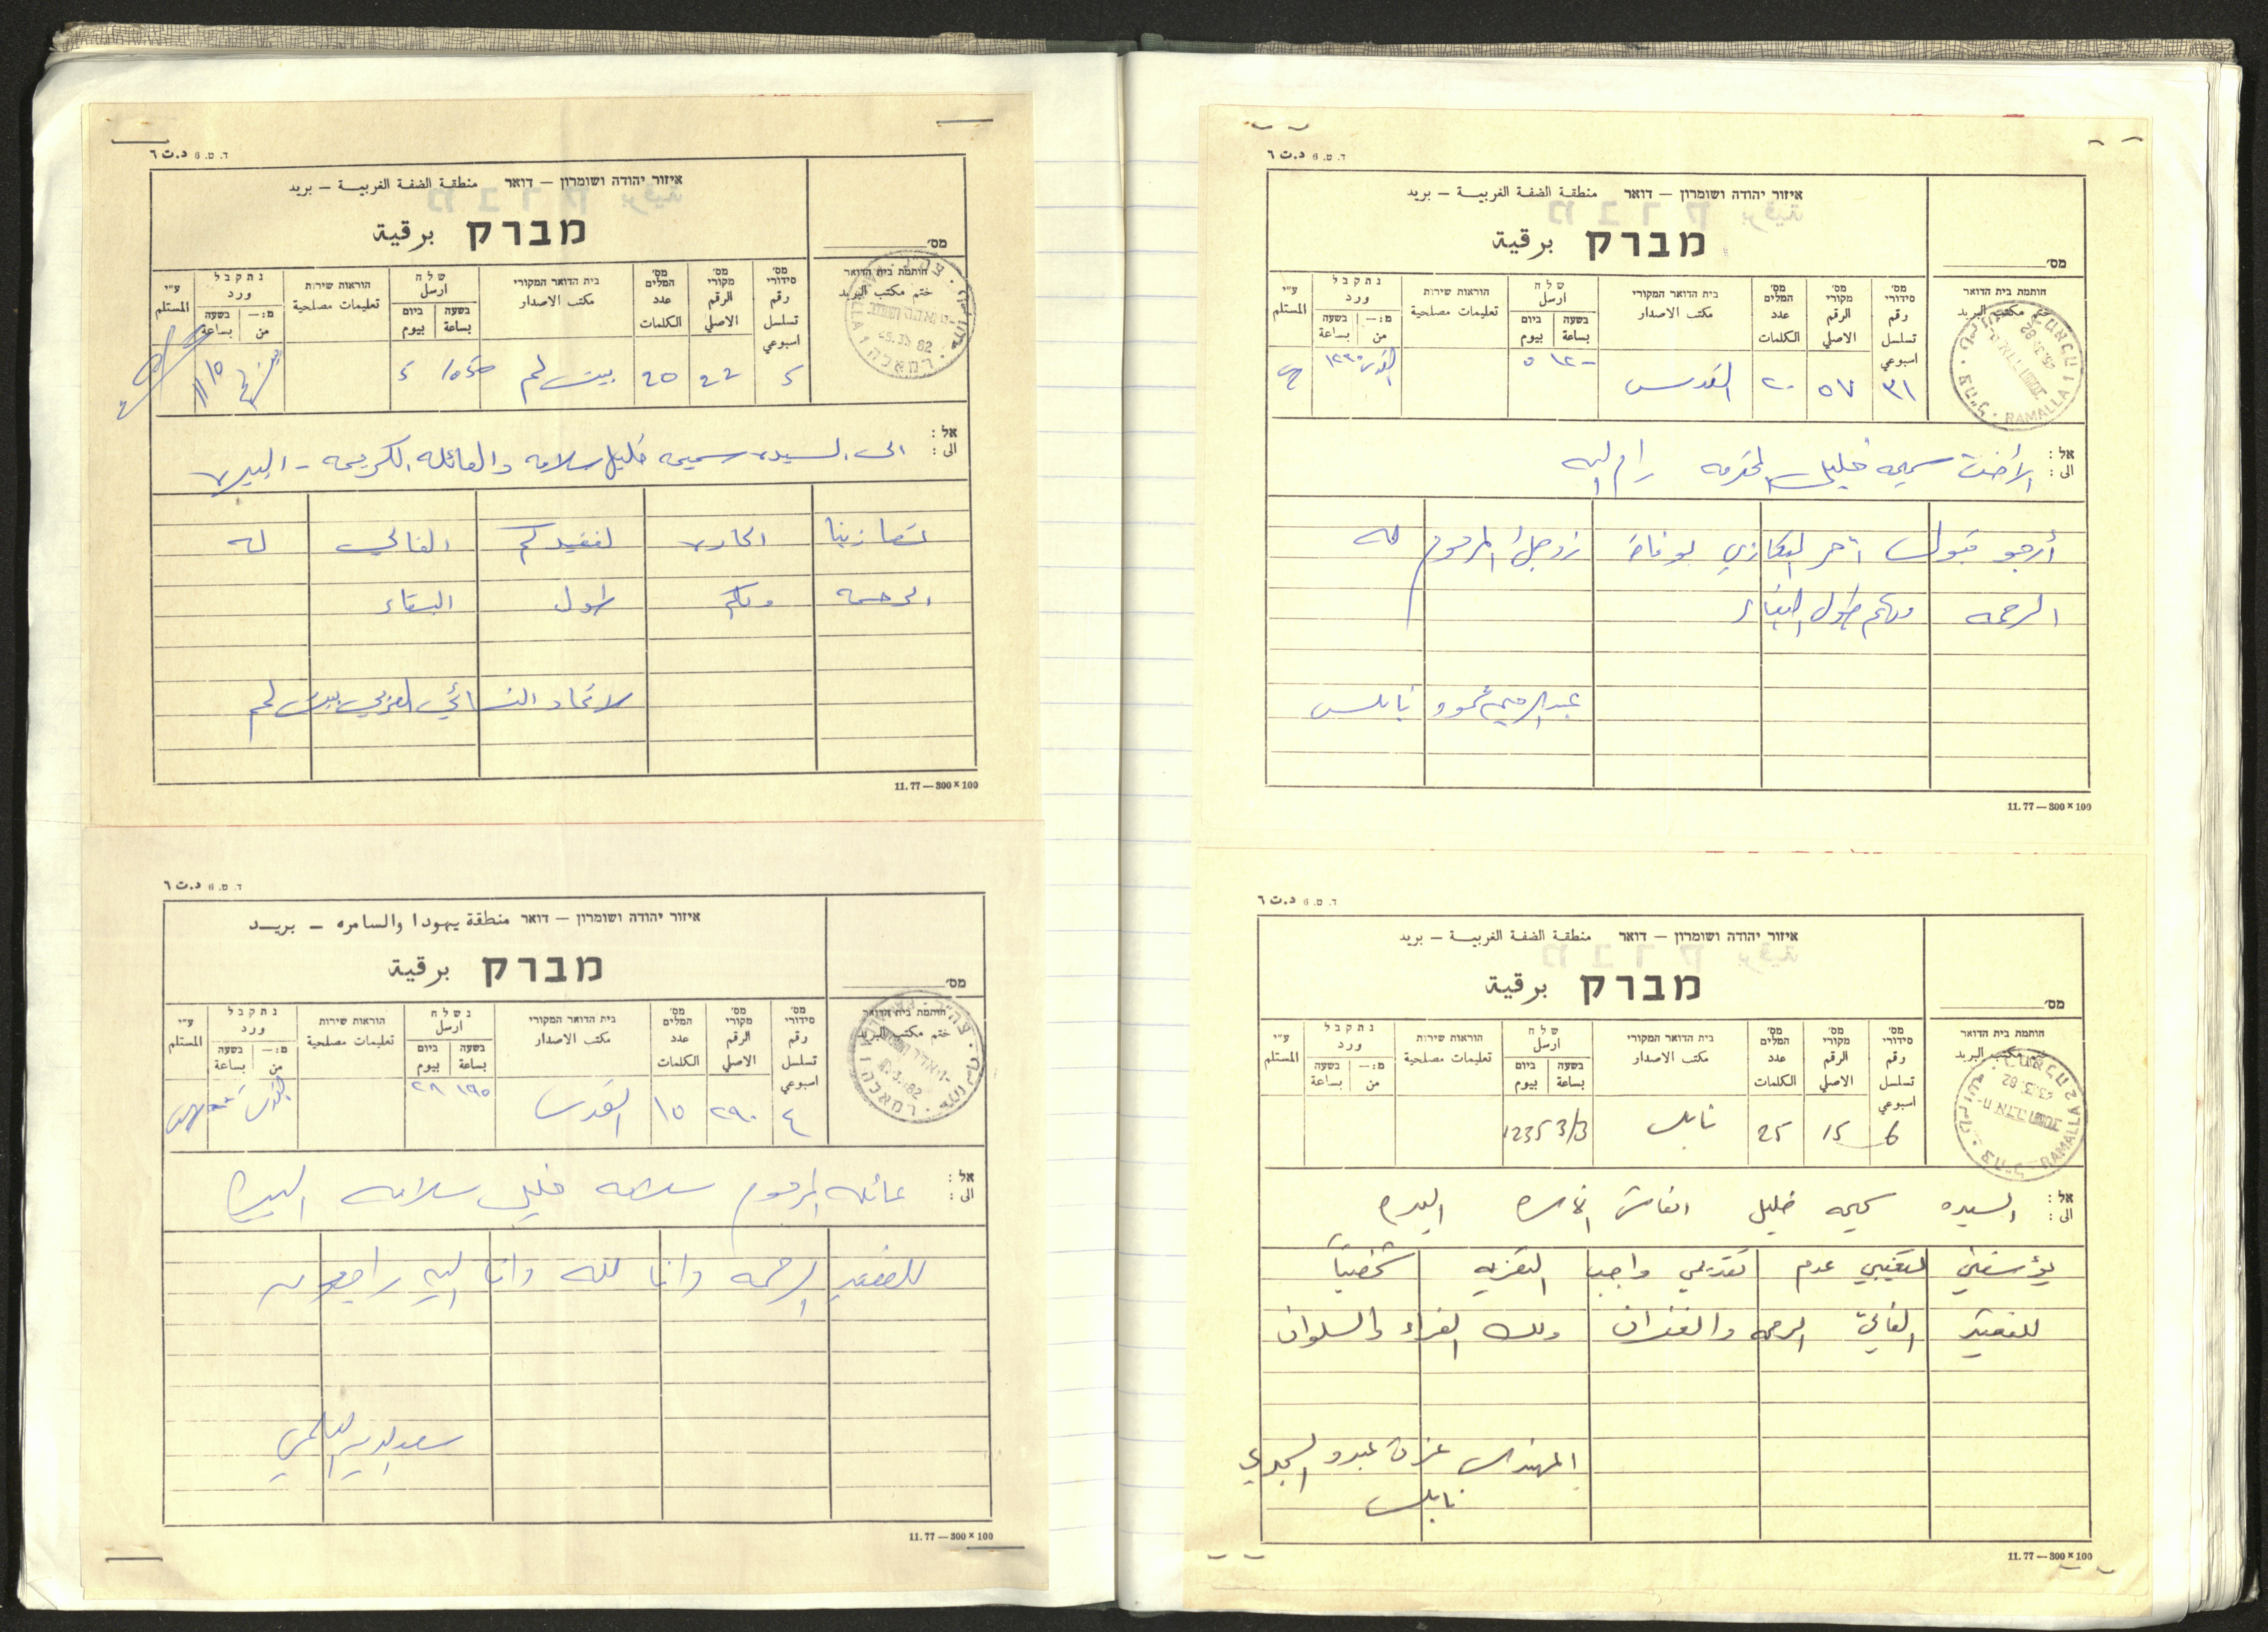 ד. ט. 6 د.ت ٦
איזור יהודה ושומרון — דואר منطقة الضفة الغربية — بريد
מברק برقية
מס׳
חותמת בית הדואר
ختم مكتب البريد
מס׳ סידורי رقم تسلسل اسبوعي
מס׳ מקורי الرقم الاصلي
מס׳ המלים عدد الكلمات
בית הדואר המקורי مكتب الاصدار
שלח ارسل
בשעה بساعة
ביום بيوم
הוראות שירות تعليمات مصلحية
נתקבל ورد
מ:— من
בשעה بساعة
ע״י المستلم
5 22 20 بيت لحم
אל :
الى : الى السيدة سميحه خليل سلامه والعائله الكريمه - البيرة
تعازينا الحارة لفقيدكم الغالي له
الرحمه ولكم طول البقاء
لاتحاد النسائي العربي بيت لحم
11.77—300×100
ד. ט. 6 د.ت ٦
איזור יהודה ושומרון — דואר منطقة يهودا والسامره — بريد
מברק برقية
מס׳
חותמת בית הדואר
ختم مكتب البريد
מס׳ סידורי رقم تسلسل اسبوعي
מס׳ מקורי الرقم الاصلي
מס׳ המלים عدد الكلمات
בית הדואר המקורי مكتب الاصدار
נשלח ارسل
בשעה بساعة
ביום بيوم
הוראות שירות تعليمات مصلحية
נתקבל ورد
מ:— من
בשעה بساعة
ע״י المستلم
٤ ٢٩٠ ١٥ القدس
אל :
الى : عائله المرحوم سلامه خليل سلامه البيرة
للفقيد الرحمه وانا لله وانا اليه راجعون
سعد الدين العلمي
11.77—300×100
ד. ט. 6 د.ت ٦
איזור יהודה ושומרון — דואר منطقة الضفة الغربية — بريد
מברק برقية
מס׳
חותמת בית הדואר
ختم مكتب البريد
RAMALLA 1
מס׳ סידורי رقم تسلسل اسبوعي
מס׳ מקורי الرقم الاصلي
מס׳ המלים عدد الكلمات
בית הדואר המקורי مكتب الاصدار
שלח ارسل
בשעה بساعة
ביום بيوم
הוראות שירות تعليمات مصلحية
נתקבל ورد
מ:— من
בשעה بساعة
ע״י المستلم
٣١ ٥٧ ٢٠ القدس
אל :
الى : الأخت سميحه خليل المحترمه رام الله
أرجو قبول أحر التعازي بوفاة زوجك المرحوم له
الرحمه ولكم طول البقاء
عبد الرحيم محمود نابلس
11.77—300×100
ד. ט. 6 د.ت ٦
איזור יהודה ושומרון — דואר منطقة الضفة الغربية — بريد
מברק برقية
מס׳
חותמת בית הדואר
ختم مكتب البريد
RAMALLA 2
מס׳ סידורי رقم تسلسل اسبوعي
מס׳ מקורי الرقم الاصلي
מס׳ המלים عدد الكلمات
בית הדואר המקורי مكتب الاصدار
שלח ارسل
בשעה بساعة
ביום بيوم
הוראות שירות تعليمات مصلحية
נתקבל ورد
מ:— من
בשעה بساعة
ע״י المستلم
6 15 25 نابلس 1235 3/3
אל :
الى : السيده سميحه خليل انعاش الاسره البيره
يؤسفني لتغيبي عدم تقديمي واجب التعزيه شخصيا
للفقيد الغالي الرحمه والغفران ولك العزاء والسلوان
المهندس عزت عبدو
نابلس
11.77—300×100